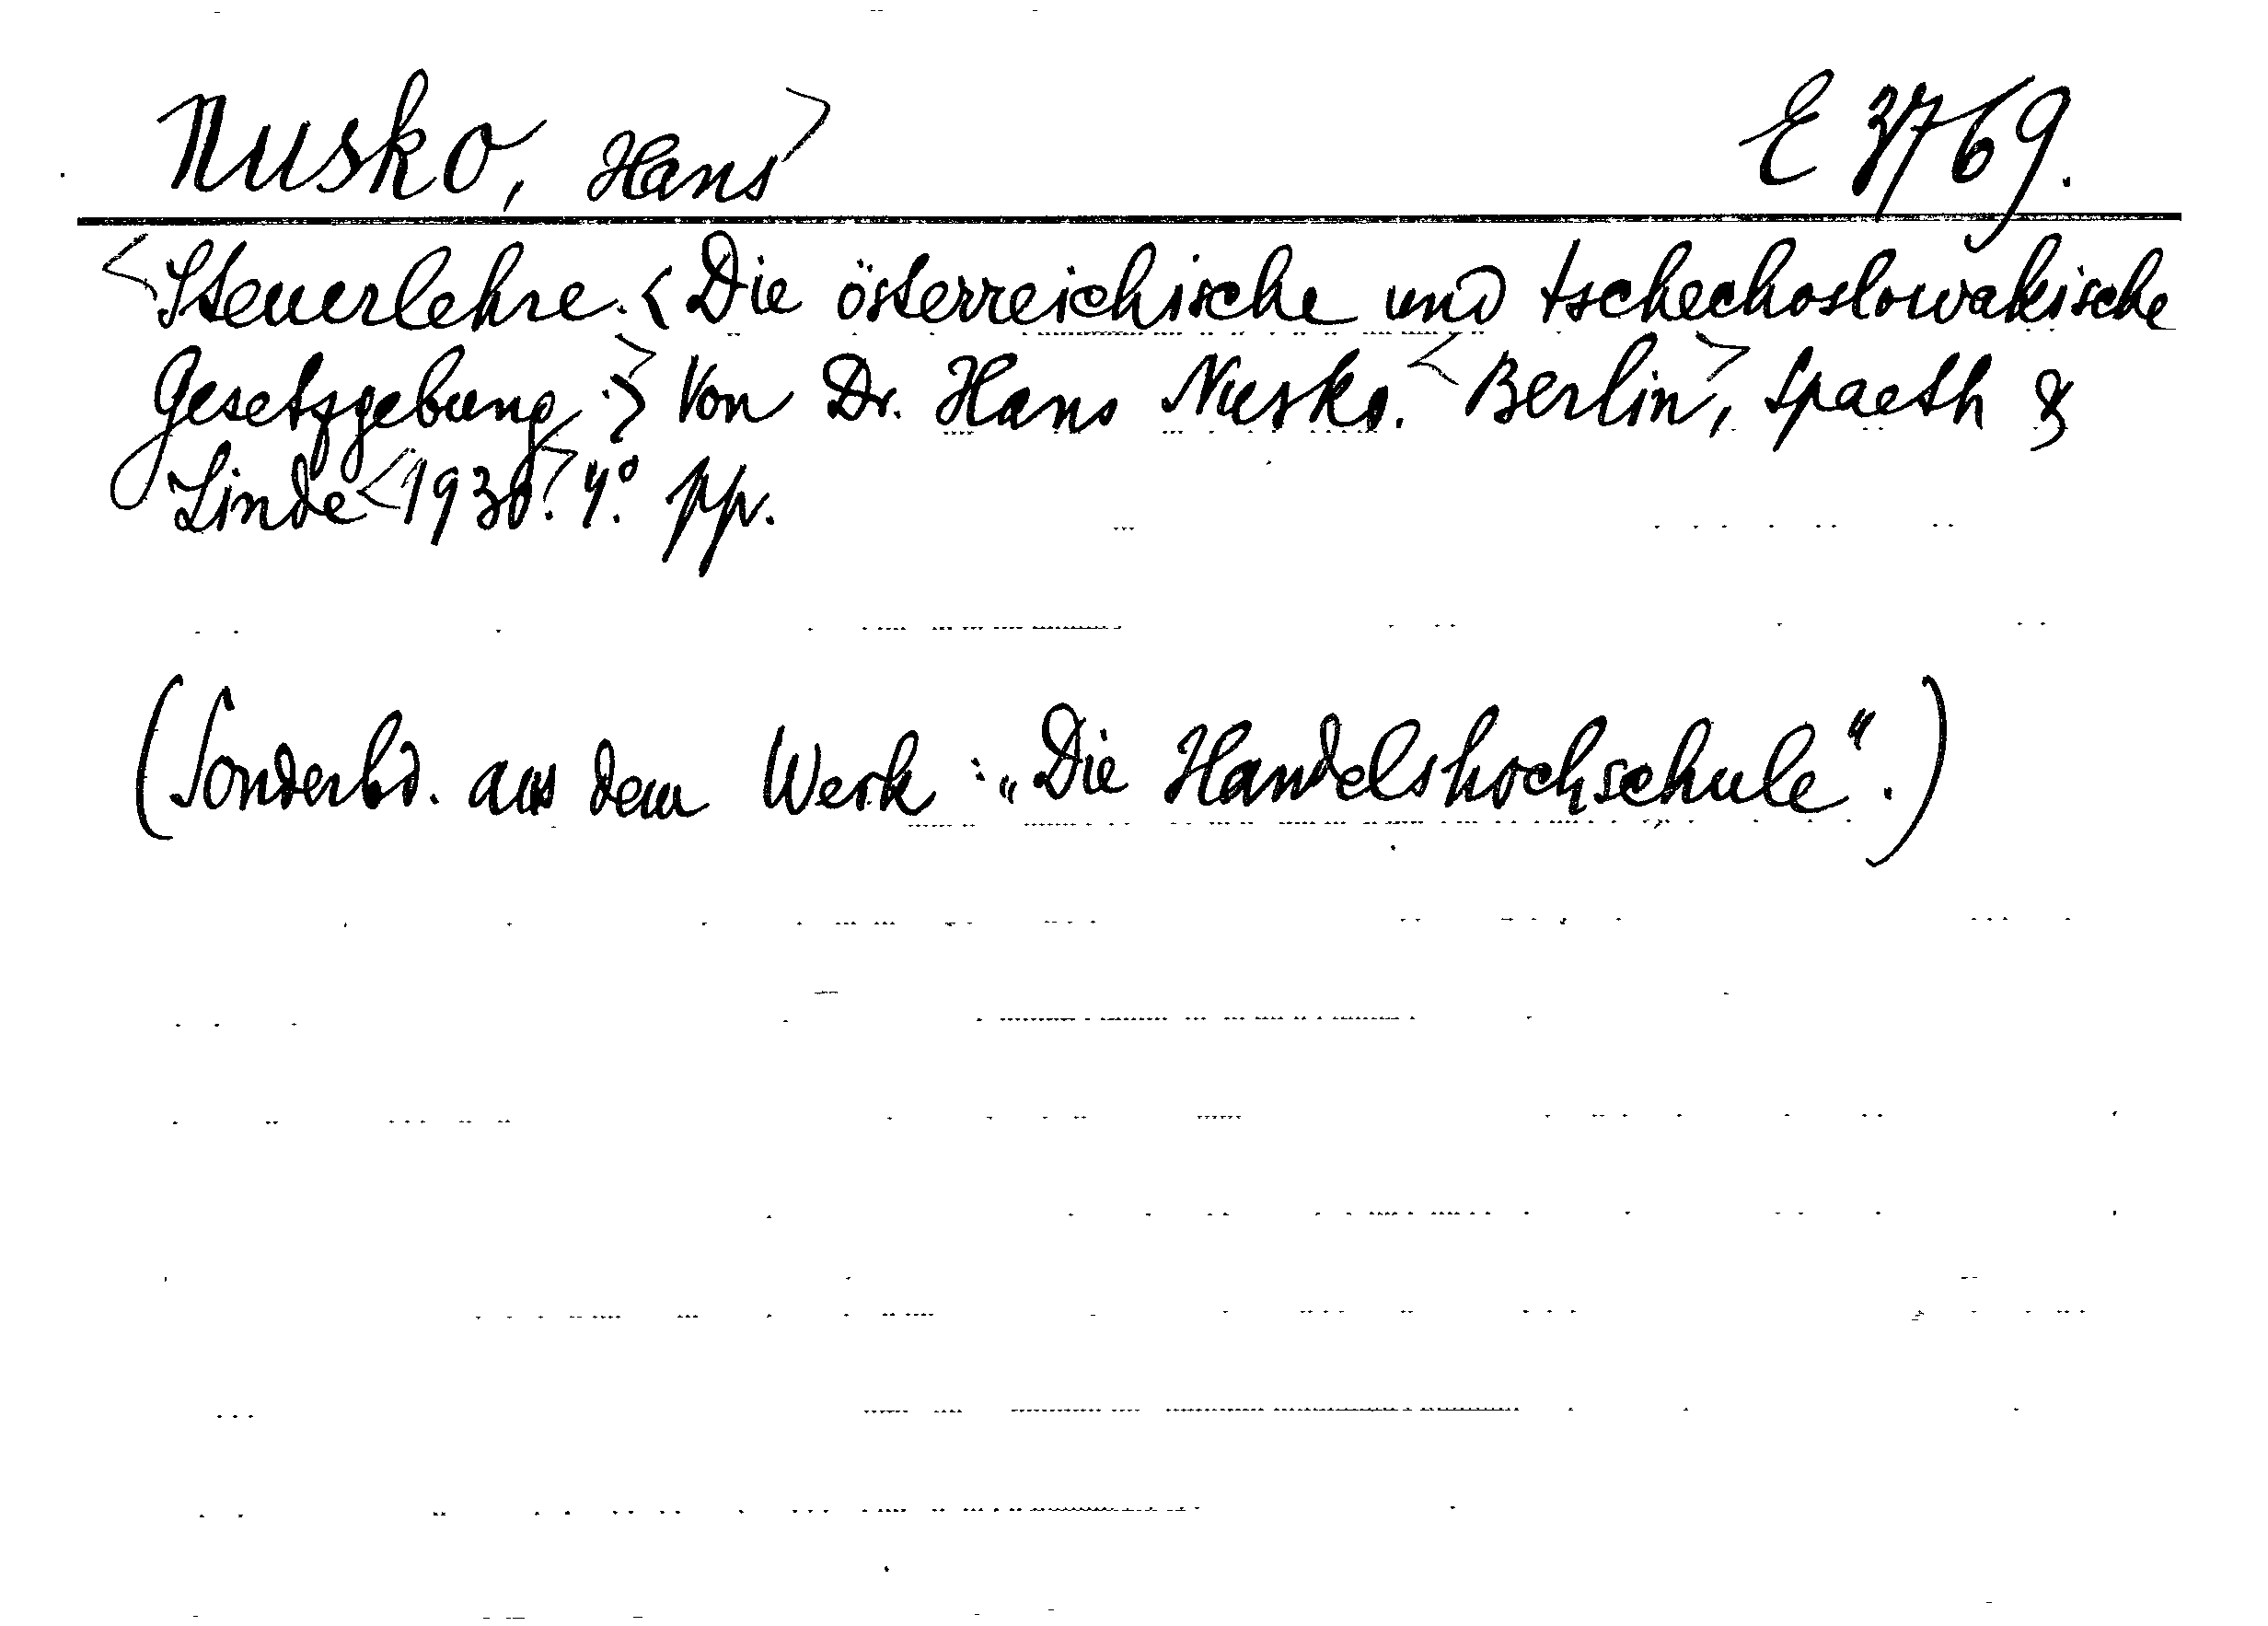 Nusko, Hans> E 3769.
<Steuerlehre. <Die österreichische und tschechoslowakische
Gesetzgebung.>> Von Dr. Hans Nusko. <Berlin>, Spaeth &
Linde <1930.> 4.° pp.
(Sonderbd. aus dem Werk: „Die Handelshochschule“.)